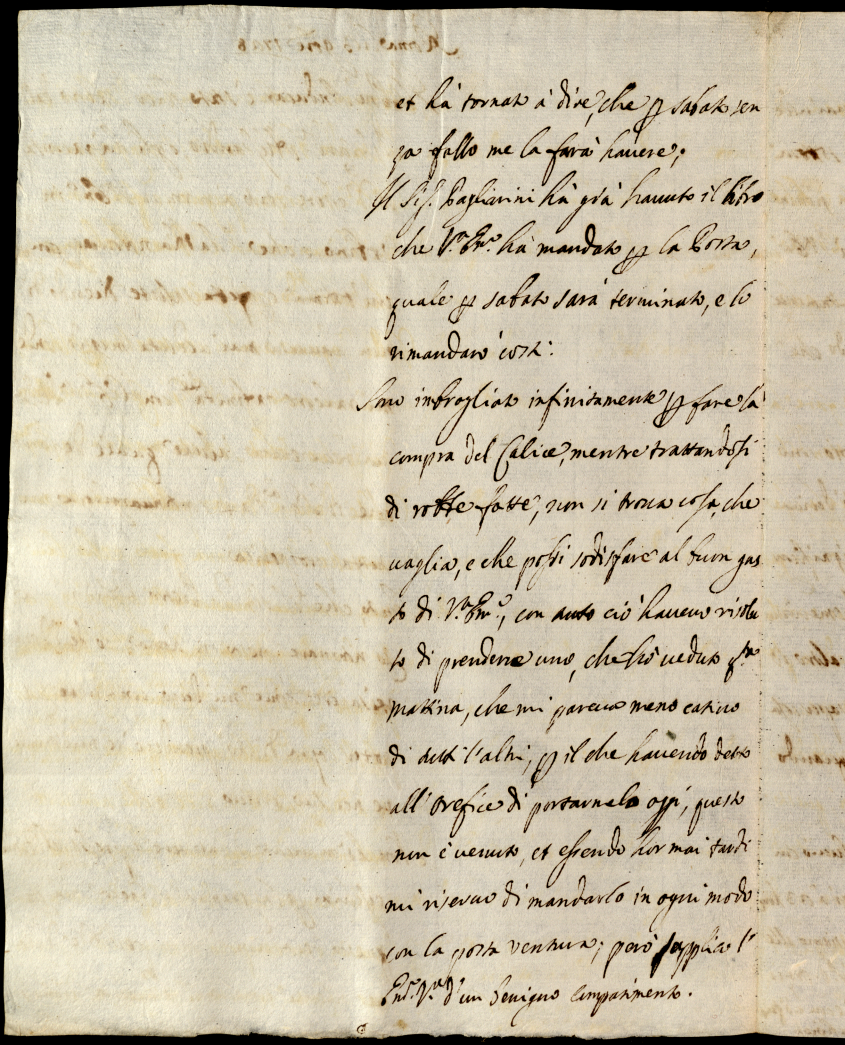 et hà tornato à dire, che p sabato sen
za fallo me la farà havere;
Il Sig. Pagliarini hà già hauuto il libro
che V.ra Em.za hà mandato p la Posta,
quale p sabato sarà terminato, e lo
rimandarò costì:
Sono imbrogliato infinitamente p fare la
compra del Calice, mentre trattandosi
di robbe fatte, non si troua cosa, che
uaglia, e che possi sodisfare al buon gus
to di V.ra Em.za, con tutto ciò haueuo risolu
to di prenderne uno, che hò ueduto q.sta
mattina, che mi pareua meno catiuo
di tutti l'altri, p il che hauendo detto
all'orefice di portarmelo oggi, questo
non è uenuto, et essendo hor mai tardi
mi riseruo di mandarlo in ogni modo
con la posta ventura; però supplico l'
Em.za V.ra d'un benigno compatimento.